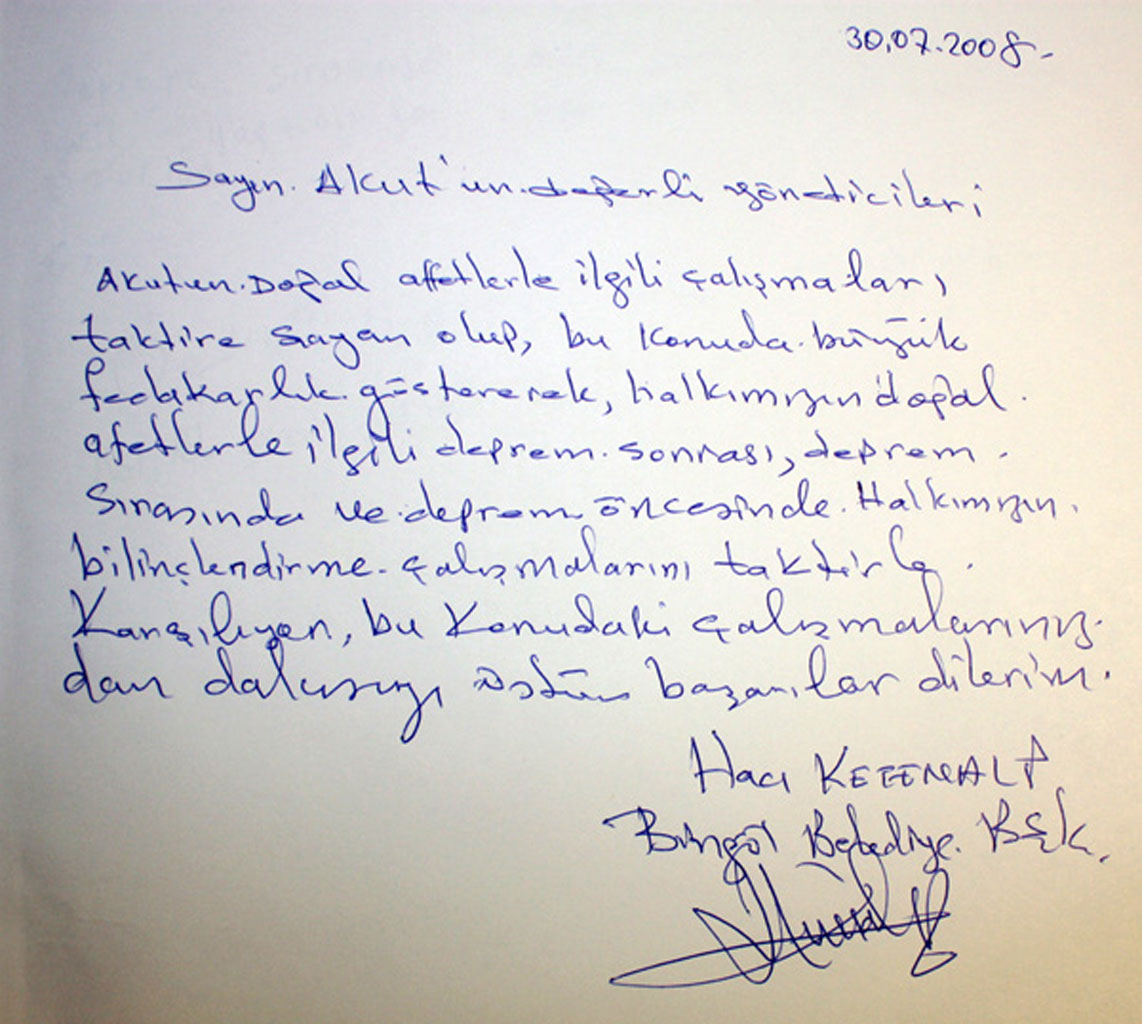 30.07.2008-
Sayın. Akut'un değerli yöneticileri
Akutun. Doğal affetlerle ilgili çalışmaları
taktire sayan olup, bu konuda büyük
fedakarlık göstererek, halkımızın doğal
afetlerle ilgili deprem sonrası, deprem
sırasında ve deprem öncesinde. Halkımızın
bilinçlendirme çalışmalarını taktirle
karşılıyan, bu konudaki çalışmalarınız-
dan dalısızı üstün başarılar dilerim.
Hacı KETENALP
Bingöl Belediye Bşk.